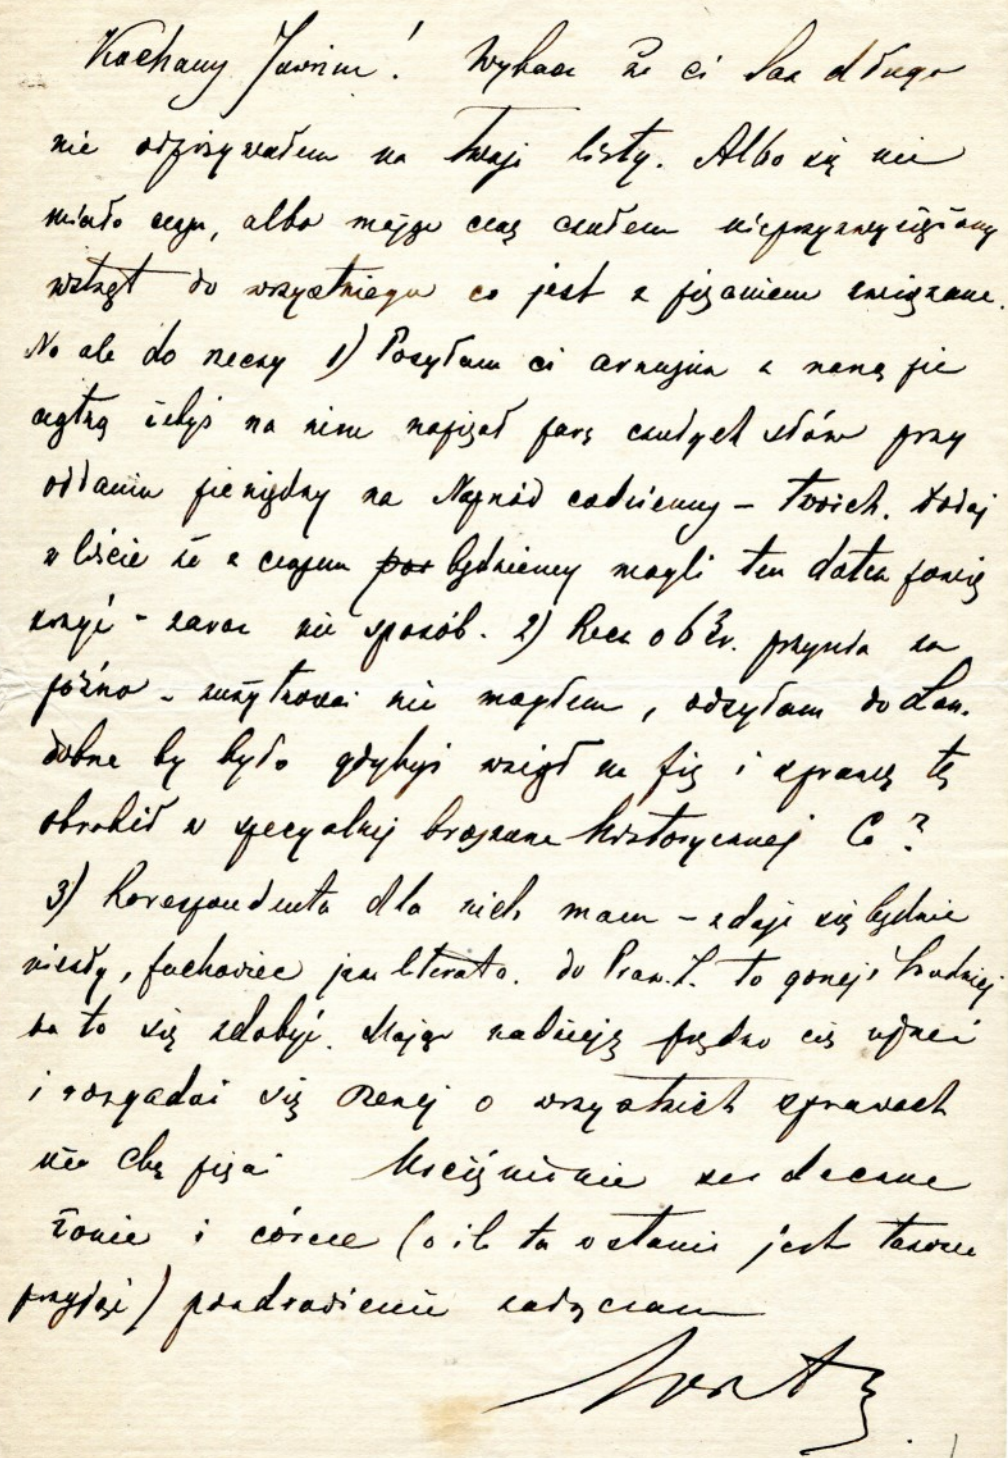 Kochany Jowisiu! Wybacz że ci tak długo
nie odpisywałem na twoje listy. Albo się nie
miało czasu, albo mając czas czułem nieprzezwyciężony
wstręt do wszystkiego co jest z pisaniem związane.
No ale do rzeczy 1) Posyłam ci arkusik z naszą pie
czątką żebyś na nim napisał parę czułych słów przy
oddaniu pieniędzy na Naprzód codzienny – twoich. Dodaj
w liście że z czasem będziemy mogli ten datek powię
kszyć – zaraz nie sposób. 2) Rzecz o 63 r. przyszła za
późno – zużytkować nie mogłem, odsyłam do Lon.
dobrze by było gdybyś wziął na się i sprawę tę
obrobił w specyalnej broszurze historycznej Co?
3) Korespondenta dla nich mam – zdaje się będzie
niezły, fachowiec jako literat. do to gorzej, trudniej
na to się zdobyć. Mając nadzieję prędko cię ujrzeć
i rozgadać się szerzej o wszystkich sprawach
nie chcę pisać Uściśnienie serdeczne
żonie i córce (o ile ta ostania jest takowe
przyjąć) pozdrowienie załączam